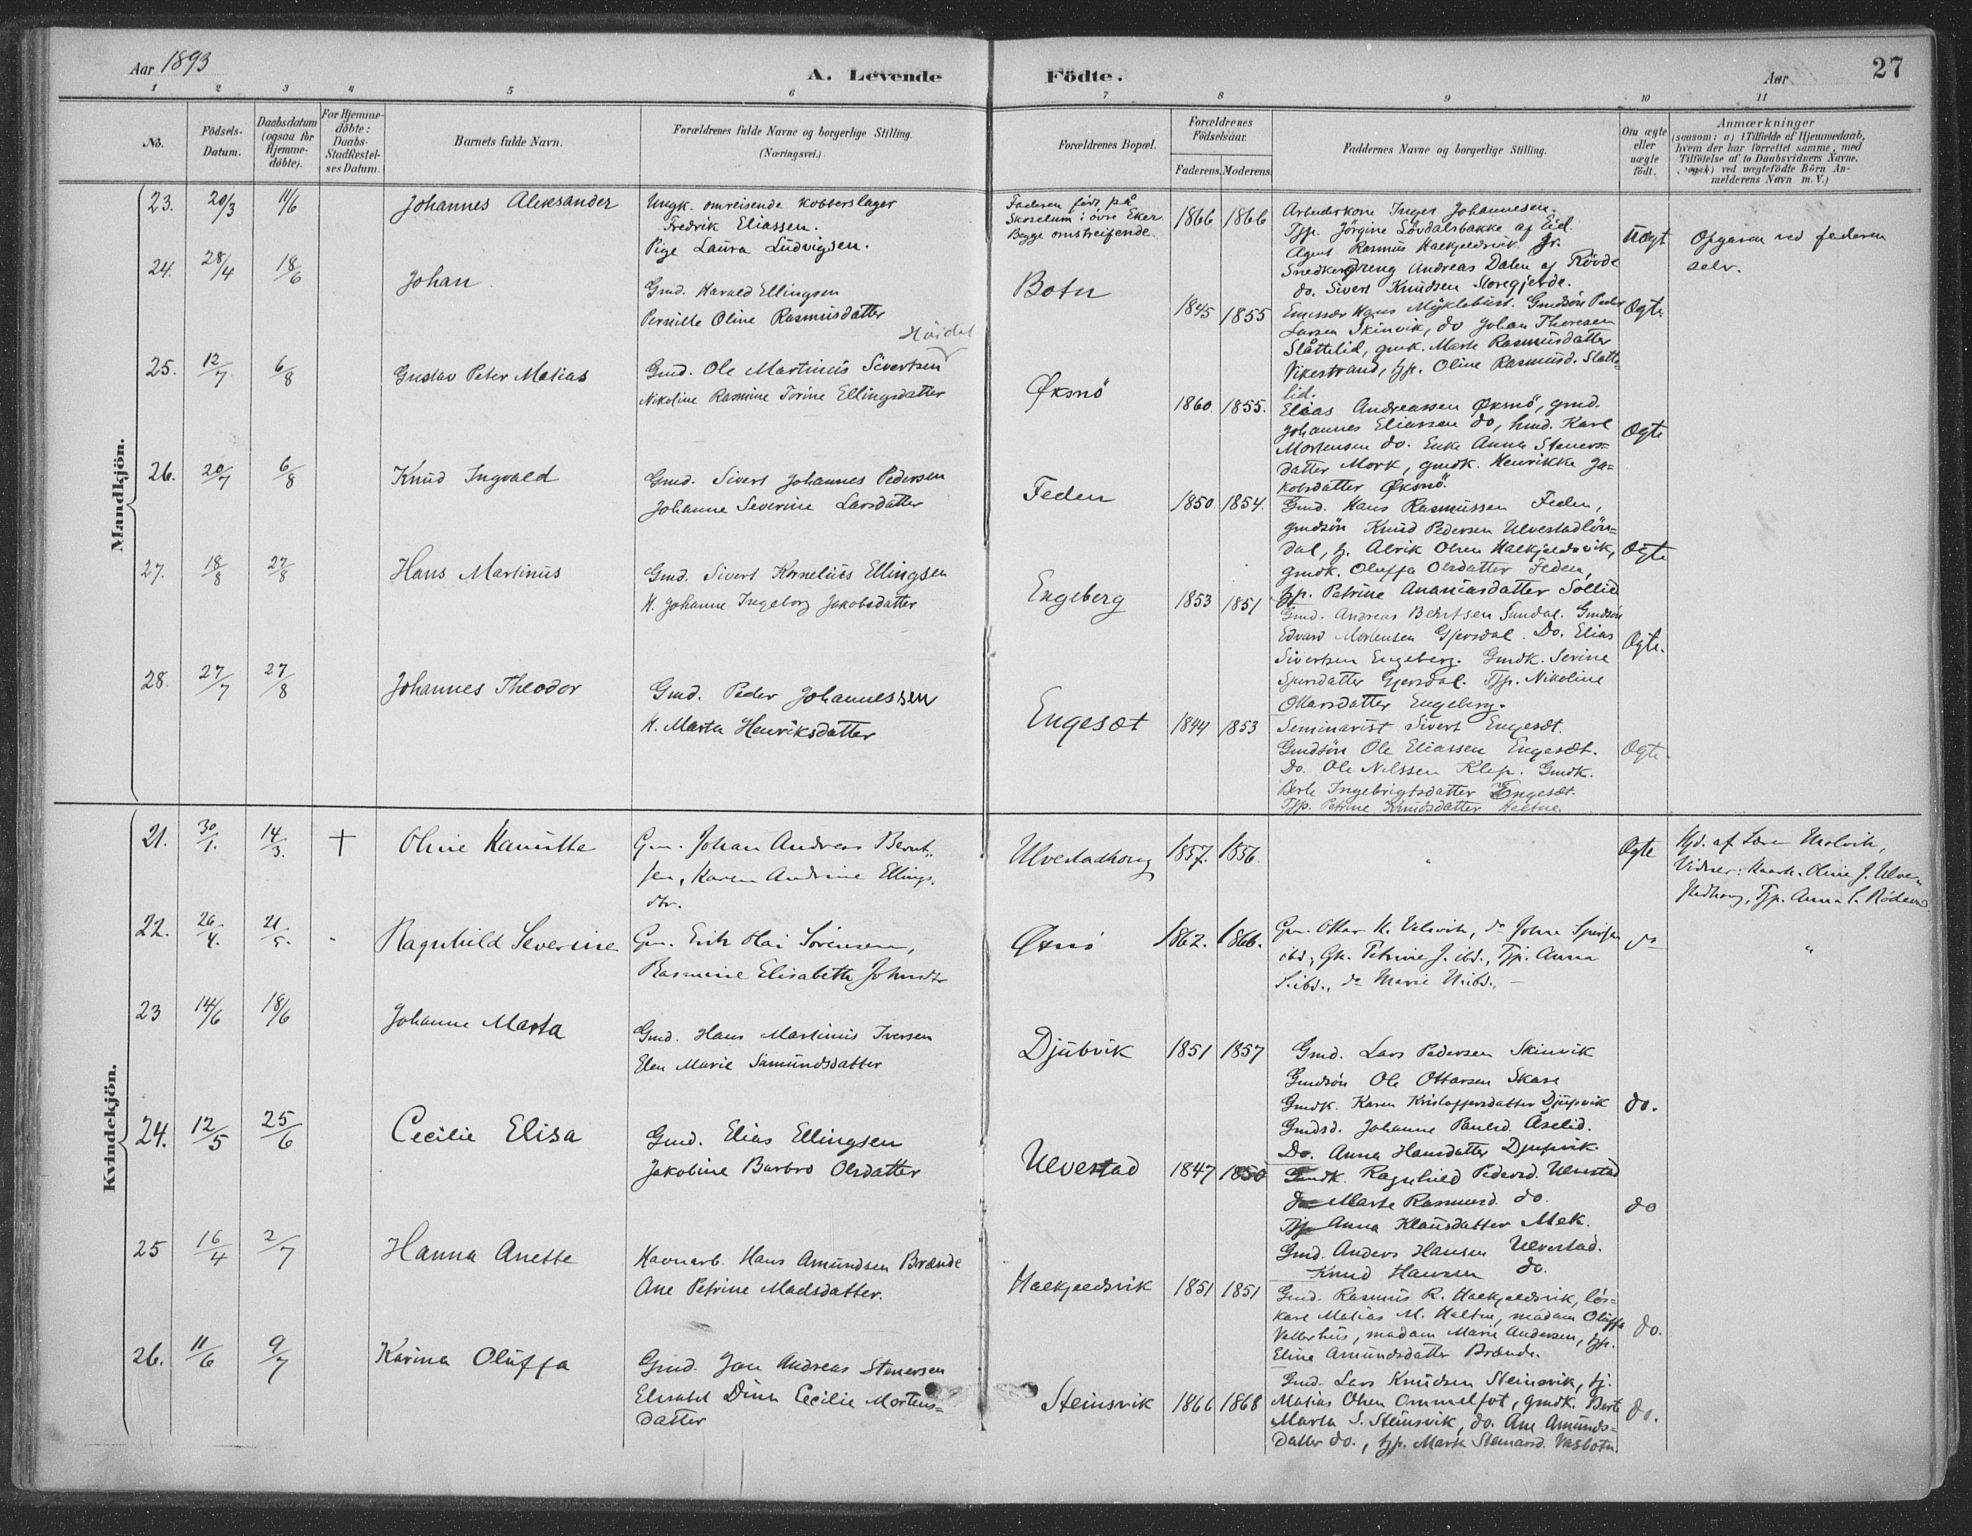 Aar 1893
A. Levende Födte.
Aar
27
1 2 3 4 5 6 7 8 9 10 11
No.
Födsels-Datum.
Daabsdatum (ogsaa for Hjemmedöbte).
For Hjemmedöbte: Daabs-Stadfæstelses Datum.
Barnets fulde Navn.
Forældrenes fulde Navne og borgerlige Stilling.
(Næringsvei.)
Forældrenes Bopæl.
Forældrenes Födselsaar.
Faderens. Moderens.
Faddernes Navne og borgerlige Stilling.
Om ægte eller uægte födt.
Anmærkninger
(saasom: a) i Tilfælde af Hjemmedaab,
hvem der har forrettet samme, med
Tilföielse af to Daabsvidners Navne.
ved uægtefödte Börn Anmelderens Navn m. V.)
Mandkjön.
23. 20/3 11/6 Johannes Aleksander
Ungk. omreisende kobberslager
Fredrik Eliassen.
Pige Laura Ludvigsen.
Faderen født på
Skotselum i övre Eker.
Begge omstreifende.
1866 1866
Arbeiderkone Inger Johannesen.
Tjp. Jörgine Lövdalsbakke af Eid.
Agent Rasmus Haekjeldsvik jr.
Snedkerdreng Andreas Dalen af Rövde
do. Sivert Knudsen Storegjerde.
Uægt
Opgaven ved faderen
selv.
24. 28/4 18/6 Johan
Gmd. Harald Ellingsen
Pernille Oline Rasmusdatter
Botn
1845 1855
Emissær Hans Myklebust. Gmdsön Peder
Larsen Skinvik, do Johan Thoresen
Slåttelid, gmk. Marte Rasmusdatter
Vikestrand, tjp. Oline Rasmusd. Slåtte-
lid.
Ægte
25. 12/7 6/8 Gustav Peter Matias
Höidal
Gmd. Ole Martinus Sivertsen
Nikoline Rasmine Torine Ellingsdatter
Øksnö
1860. 1855.
Elias Andreassen Øksnö, gmd.
Johannes Eliassen do, hmd. Karl
Mortensen do. Enke Anna Steners-
datter Mork, gmdk. Henrikke Ja-
kobsdatter Øksnö.
Ægte
26. 20/7 6/8 Knud Ingvald
Gmd. Sivert Johannes Pedersen
Johanne Severine Larsdatter
Feden
1850 1854.
Gmd. Hans Rasmussen Feden,
gmdsön Knud Pedersen Ulvestadlön-
dal, tj. Alrik Olsen Haekjeldsvik,
gmdk. Oluffa Olsdatter Feden,
tjp. Petrine Ananiasdatter Sollid
Ægte
27. 18/8 27/8 Hans Martinus
Gmd. Sivert Kornelius Ellingsen
H. Johanne Ingeborg Jakobsdatter
Engeberg
1853 1851
Gmd. Andreas Berntsen Sundal. Gmdsön
Edvard Mortensen Gjersdal. Do. Elias
Sivertsen Engeberg. Gmdk. Serine
Sjursdatter Gjersdal. Tjp. Nikoline
Ottarsdatter Engeberg.
Ægte.
28. 27/7 27/8 Johannes Theodor
Gmd. Peder Johannessen
H. Marta Henriksdatter
Engesæt
1844 1853
Seminarist Sivert Engesæt.
Gmdsön Ole Eliassen Engesæt.
Do. Ole Nilssen Klep. Gmdk.
Berte Ingebrigtsdatter Engesæt.
Tjp. Petrine Knudsdatter Heltne.
Ægte.
Kvindekjön.
21. 30/1. 14/3. † Oline Kamilla
Gm. Johan Andreas Bernt-
sen, Karen Andrine Ellings.
dtr.
Ulvestadhoug
1857. 1856.
Ægte
Hjd. af Lærer Molvik,
Vidner: Oline J. Ulve-
stadhoug, Tjp. Anna S.
22. 26/4. 21/5. Ragnhild Severine
Gm. Erik Hai Sörensen,
Rasmine Elisabeth Johnsdtr
Øxnö
1862. 1866.
Gm. Ottar K. Velsvik, do Johne
ibd., Gk. Petrine J. ibd., Tjp. Anna
S. ibd., do Marie N. ibd.,
do
23 14/6 18/6 Johanne Marta
Gmd. Hans Martinus Iversen
Elen Marie Samundsdatter
Djubvik
1851 1857
Gmd. Lars Pedersen Skinvik
Gmdsön Ole Ottarsen Skare
Gmdk. Karen Kristoffersdatter Djupvik
Gmdsd. Johanne Paulsd. Aselid.
Do. Anna Hansdatter Djupvik
do.
24. 12/5 25/6 Cecilie Elisa
Gmd. Elias Ellingsen
Jakobine Barbro Olsdatter
Ulvestad
1847 1850
Gmdk. Ragnhild Pedersd. Ulvestad
do Marte Rasmusd. do.
Tjp Anna Klausdatter Mek.
Gmd. Anders Hansen Ulvestad.
Knud Hansen do.
do
25 16/4 2/7 Hanna Anette
Havnarb. Hans Amundsen Brænde
Ane Petrine Madsdatter.
Haekjeldsvik
1851 1851
Gmd. Rasmus R. Haekjeldsvik, lös-
kare Matias M. Heltne, madam Oluffa
Vatterhus, madam Marie Andersen, tjp.
Eline Amundsdatter Brænde.
do.
26. 11/6 9/7 Karina Oluffa
Gmd. Jon Andreas Stenersen
Elisabet Dina Cecilie Mortens-
datter
Steinsvik
1866 1868
Gmd. Lars Knudsen Steinsvik, tj.
Matias Olsen Ommelfot, gmdk. Berte
Marta S. Steinsvik, do. Ane Amunds-
datter do., tjp. Marte Steinarsd. Vasbotn.
do.